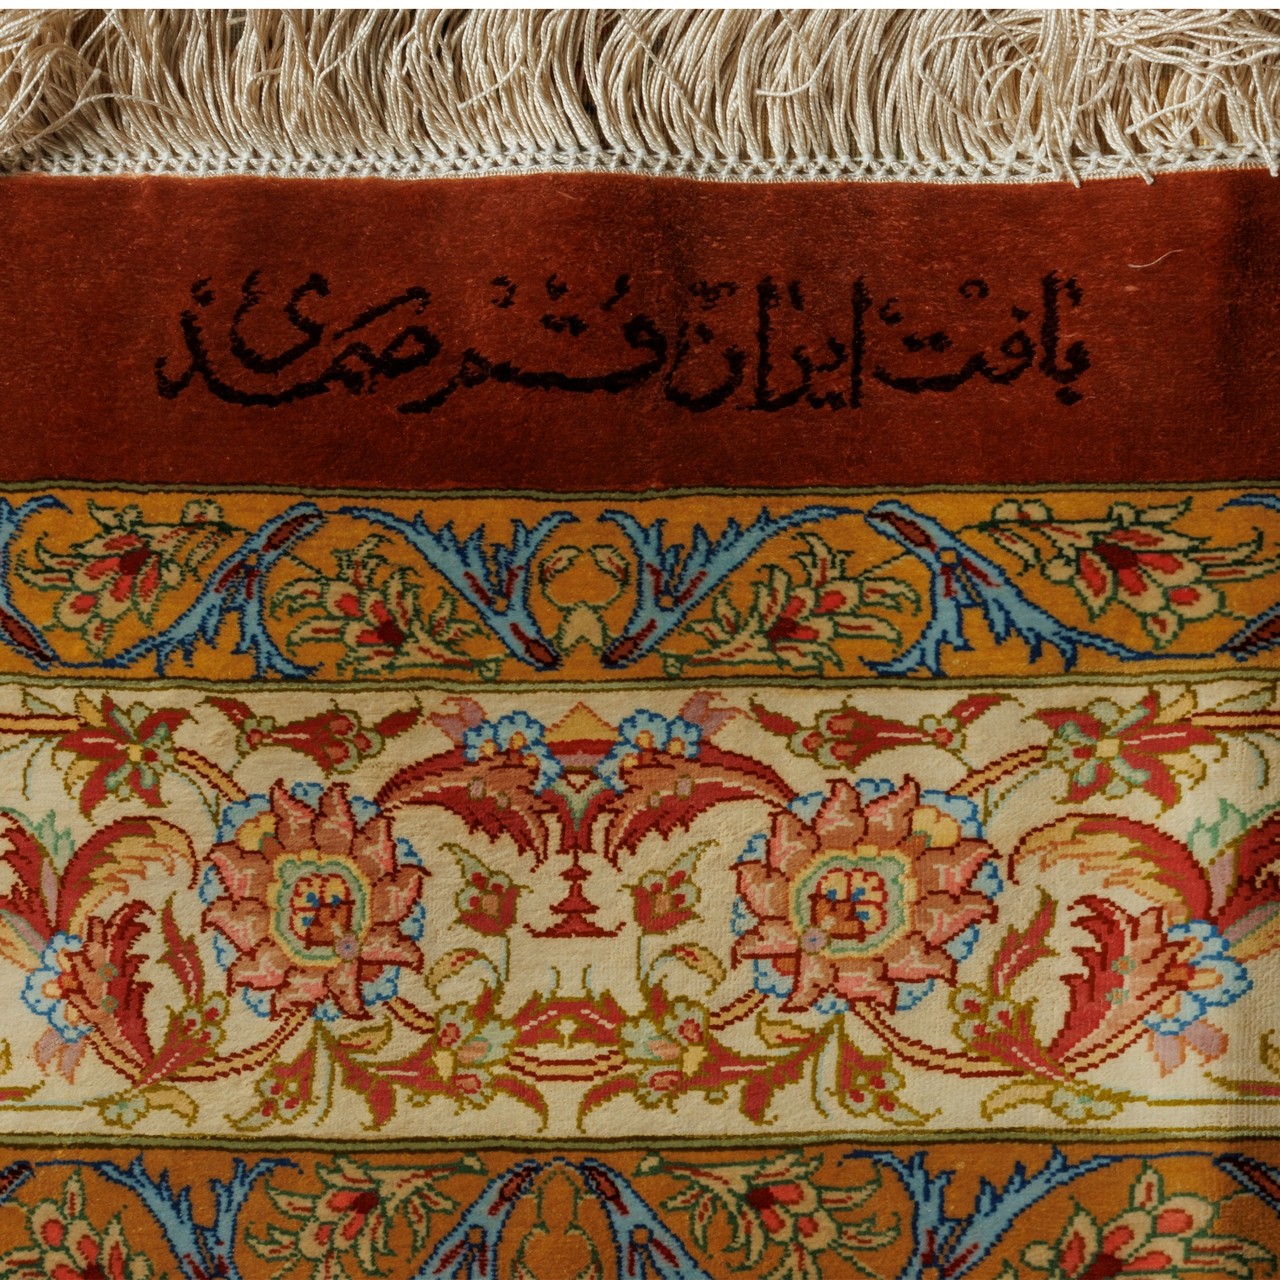 بافت ایران قم صمدی